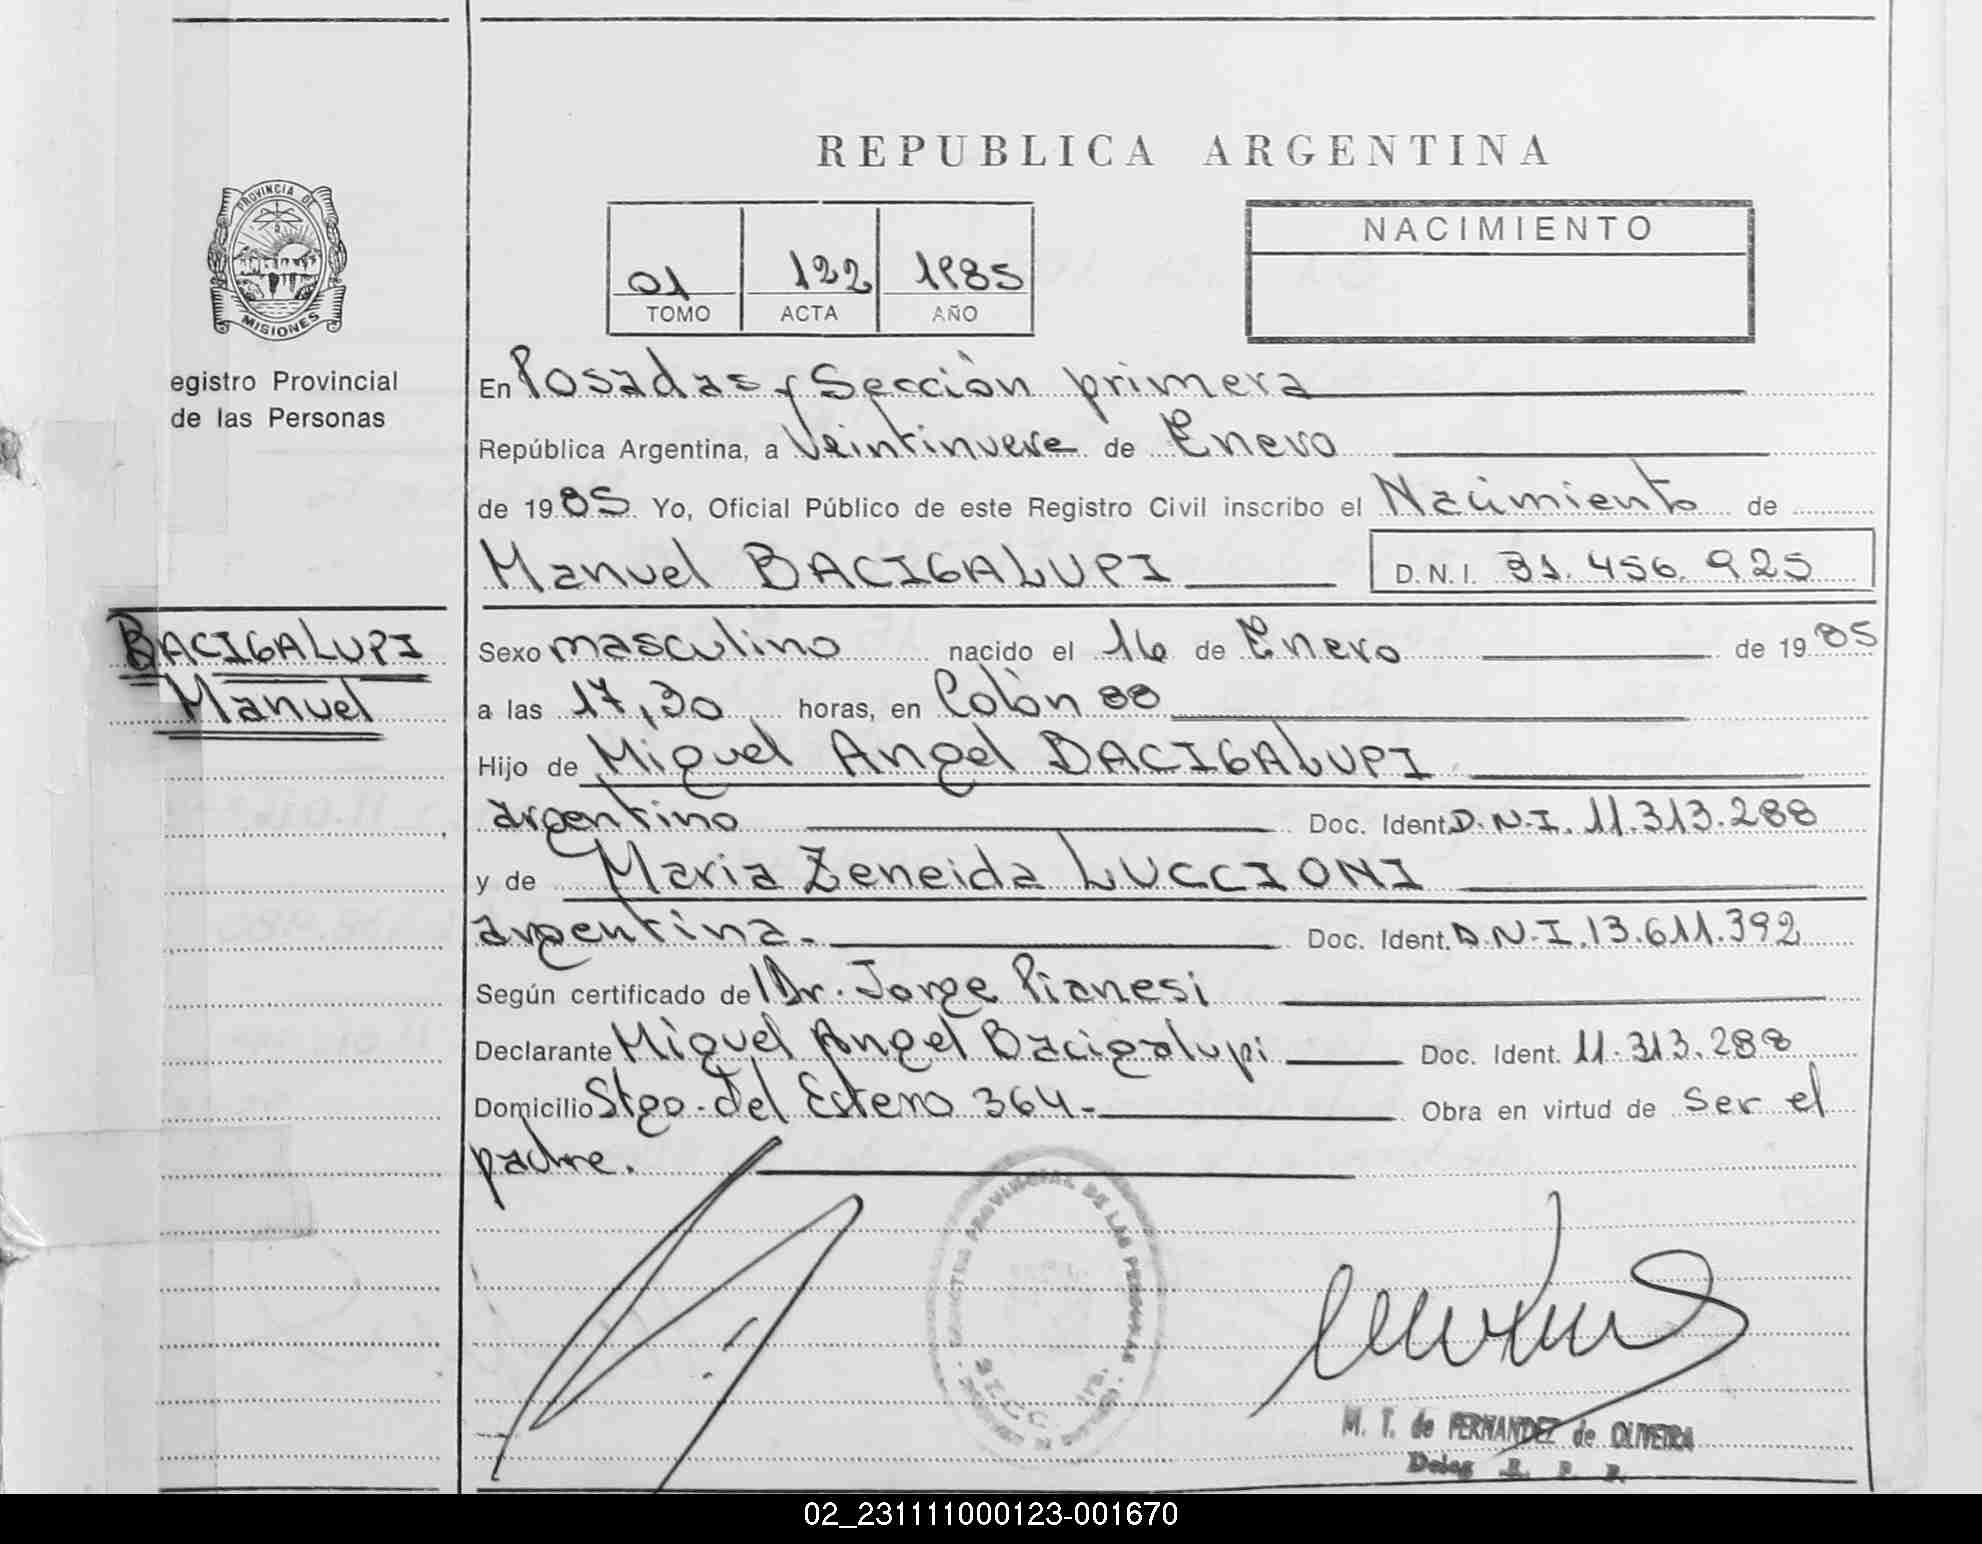 REPUBLICA ARGENTINA
PROVINCIA DE
MISIONES
egistro Provincial
de las Personas
01 122 1985
TOMO ACTA AÑO
NACIMIENTO
En Posadas, Sección primera
República Argentina, a Veintinueve de Enero
de 1985 Yo, Oficial Público de este Registro Civil inscribo el Nacimiento de
Manuel BACIGALUPI D.N.I. 31.456.925
BACIGALUPI
Manuel
Sexo masculino nacido el 16 de Enero de 1985
a las 17,30 horas, en Colón 88
Hijo de Miguel Angel BACIGALUPI
argentino Doc. Ident. D.N.I. 11.313.288
y de Maria Zeneida LUCCIONI
argentina. Doc. Ident. D.N.I. 13.611.392
Según certificado de Dr. Jorge Pianesi
Declarante Miguel Angel Bacigalupi Doc. Ident. 11.313.288
Domicilio Stgo. del Estero 364 Obra en virtud de Ser el
padre.
PROVINCIAL DE LAS PERSONAS
M. T. de FERNANDEZ de OLIVEIRA
Deleg R. P. P.
02_231111000123-001670